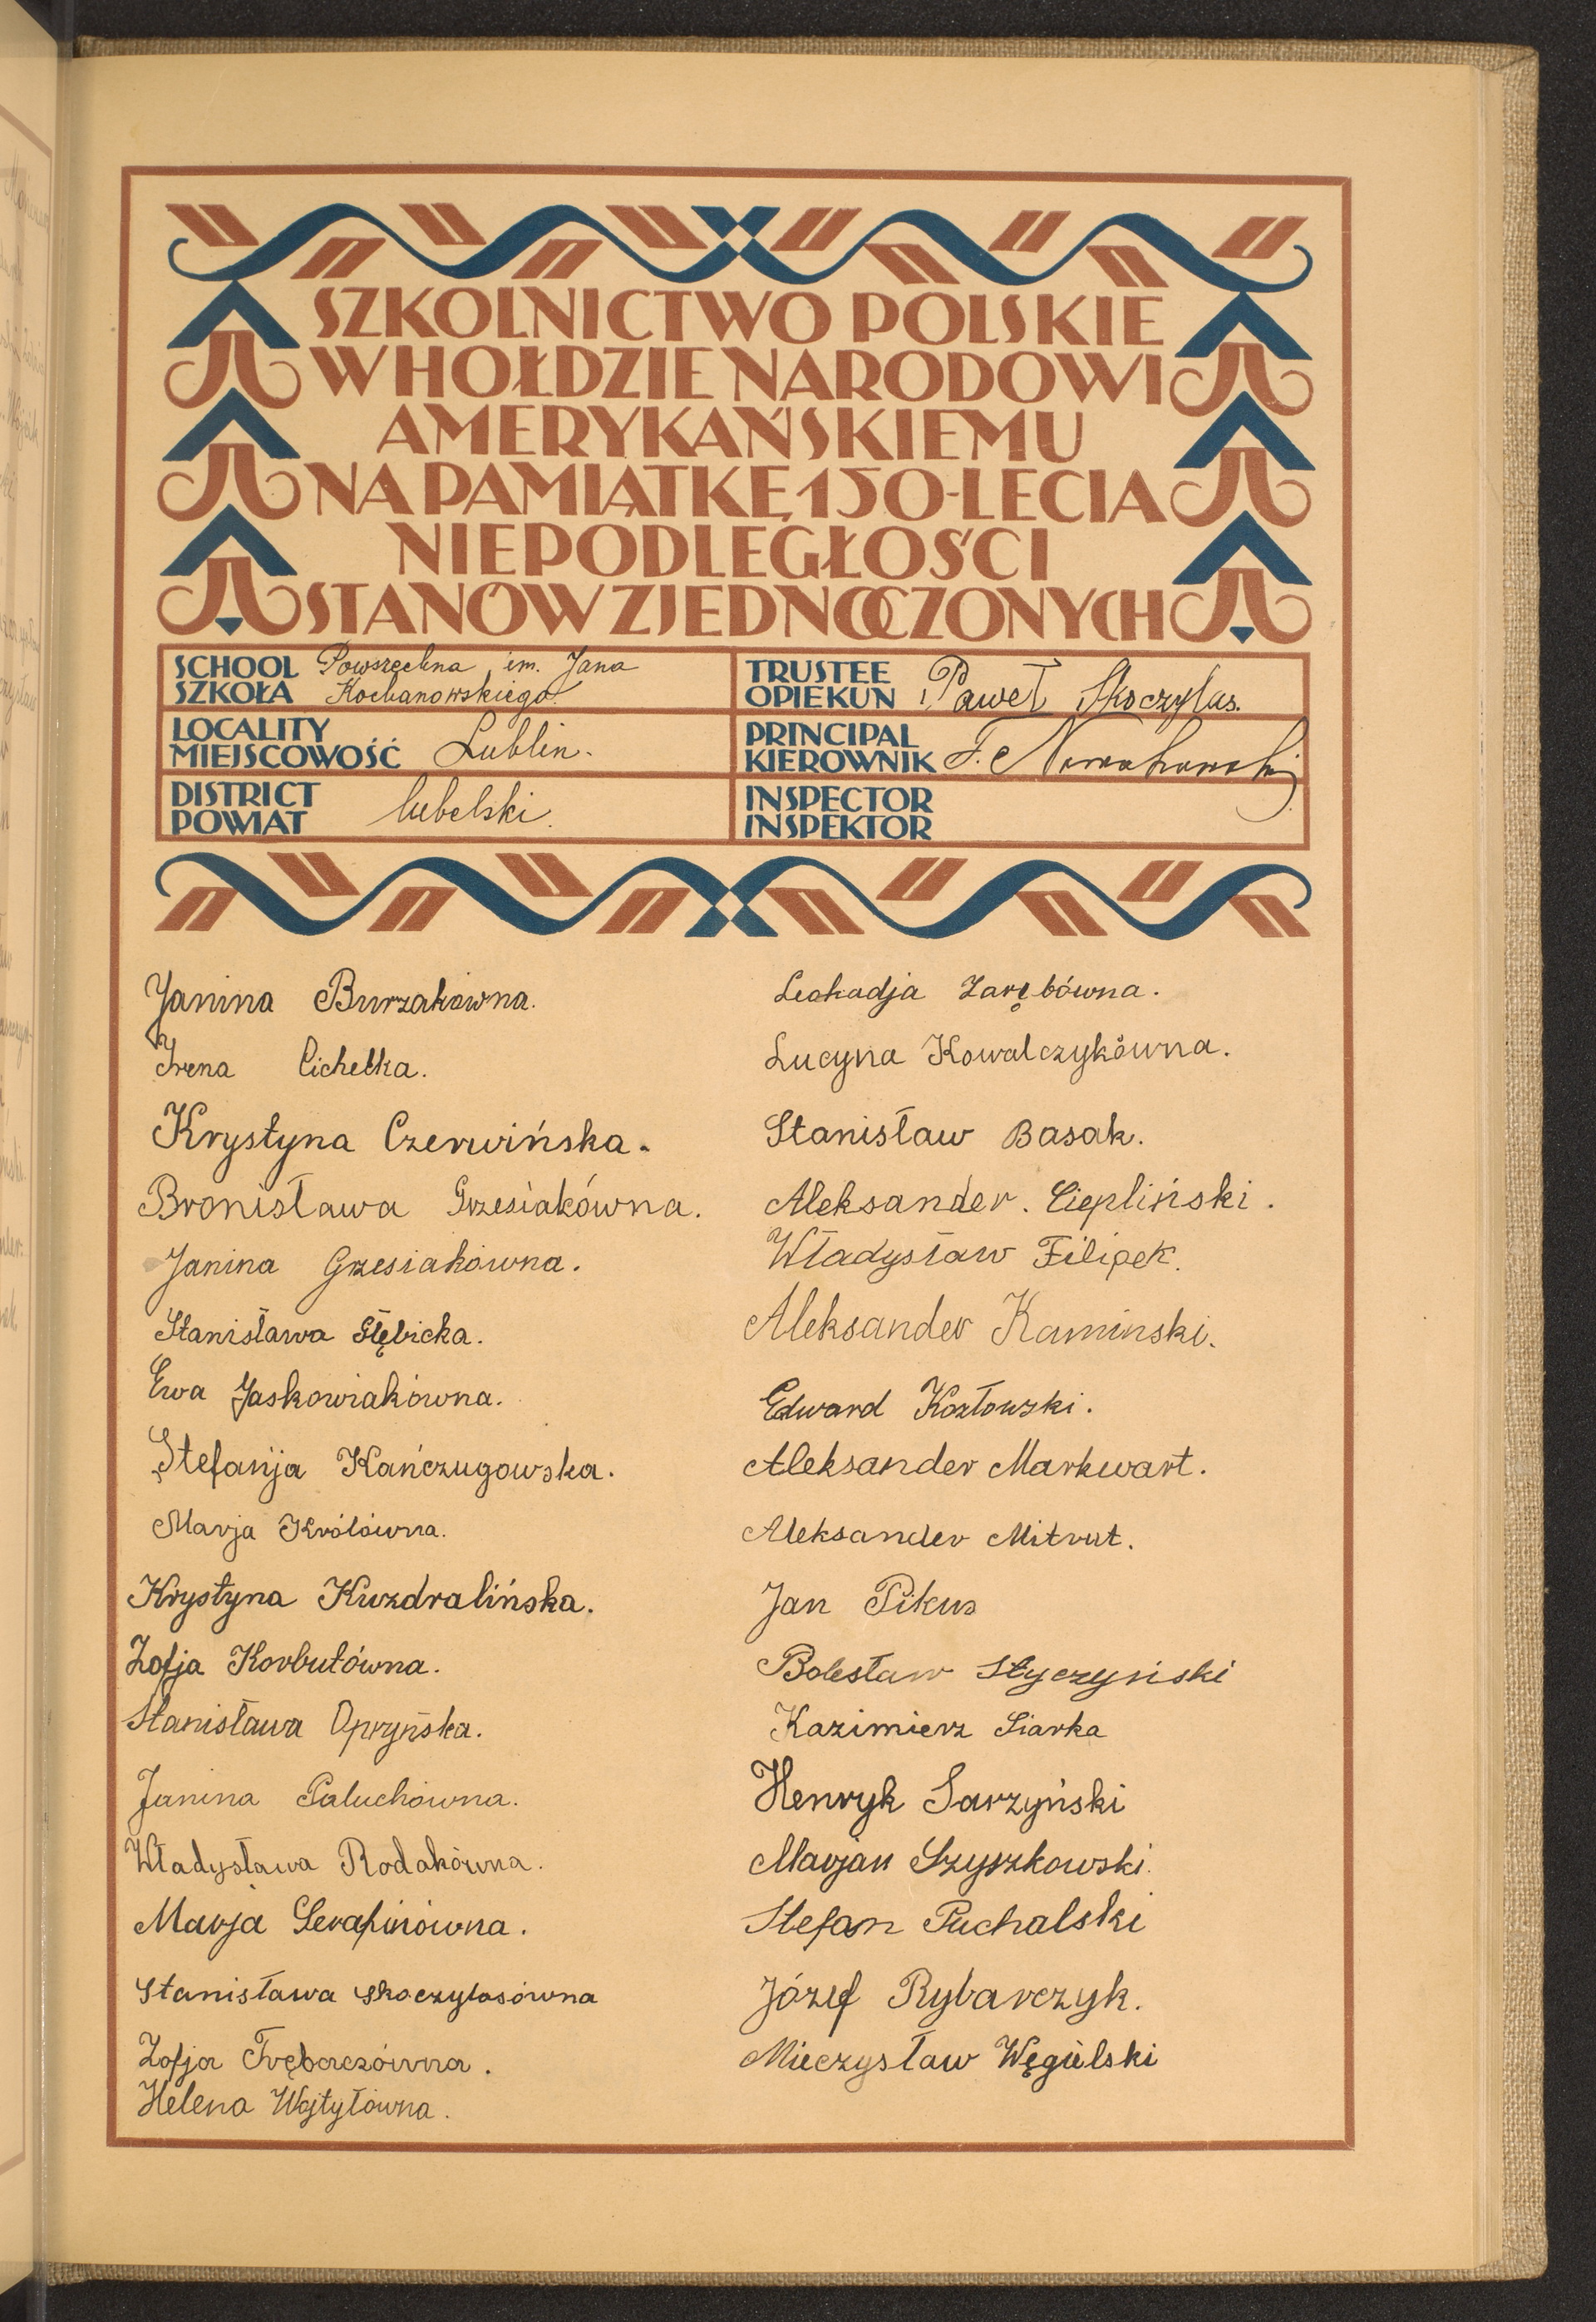 SZKOLNICTWO POLSKIE
W HOŁDZIE NARODOWI
AMERYKAŃSKIEMU
NA PAMIĄTKĘ 150-LECIA
NIEPODLEGŁOŚCI
STANÓW ZJEDNOCZONYCH
SCHOOL SZKOŁA Powszechna im. Jana
Kochanowskiego
TRUSTEE OPIEKUN Paweł Skoczylas.
LOCALITY
MIEJSCOWOŚĆ Lublin.
PRINCIPAL
KIEROWNIK F. Nowakowski
DISTRICT
POWIAT lubelski.
INSPECTOR
INSPEKTOR
Janina Burzakówna.
Irena Cichelka.
Krystyna Czerwińska.
Bronisława Grzesiakówna.
Janina Grzesiakówna.
Stanisława Głębicka.
Ewa Jaskowiakówna.
Stefanja Kańczugowska.
Marja Królówna.
Krystyna Kuzdralińska.
Zofja Korbutówna.
Stanisława Opryńska.
Janina Paluchówna.
Władysława Rodakówna.
Marja Serafinówna.
Stanisława Skoczylasówna
Zofja Trębaczówna.
Helena Wojtyłówna.
Leokadja Zarębówna.
Lucyna Kowalczykówna.
Stanisław Basak.
Aleksander. Ciepliński.
Władysław Filipek.
Aleksander Kaminski.
Edward Kozłowski.
Aleksander Markwart.
Aleksander Mitrut.
Jan Pikus
Bolesław Styczyński
Kazimierz Siarka
Henryk Sarzyński
Marjan Szyszkowski.
Stefan Puchalski
Józef Rybarczyk.
Mieczysław Węgielski